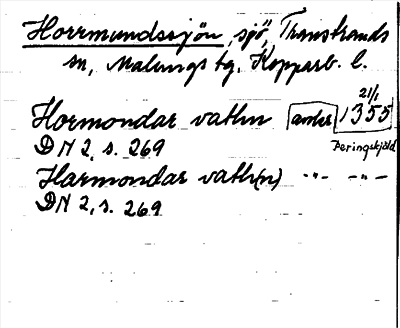 Horrmundssjön, sjö, Transtrands
sn, Malungs tg, Kopparb. l.
21/1
Hormondar vathn avskr 1355
DN 2, s. 269 Peringskjöld
Harmondar vath(n) -"- -"-
DN 2, s. 269